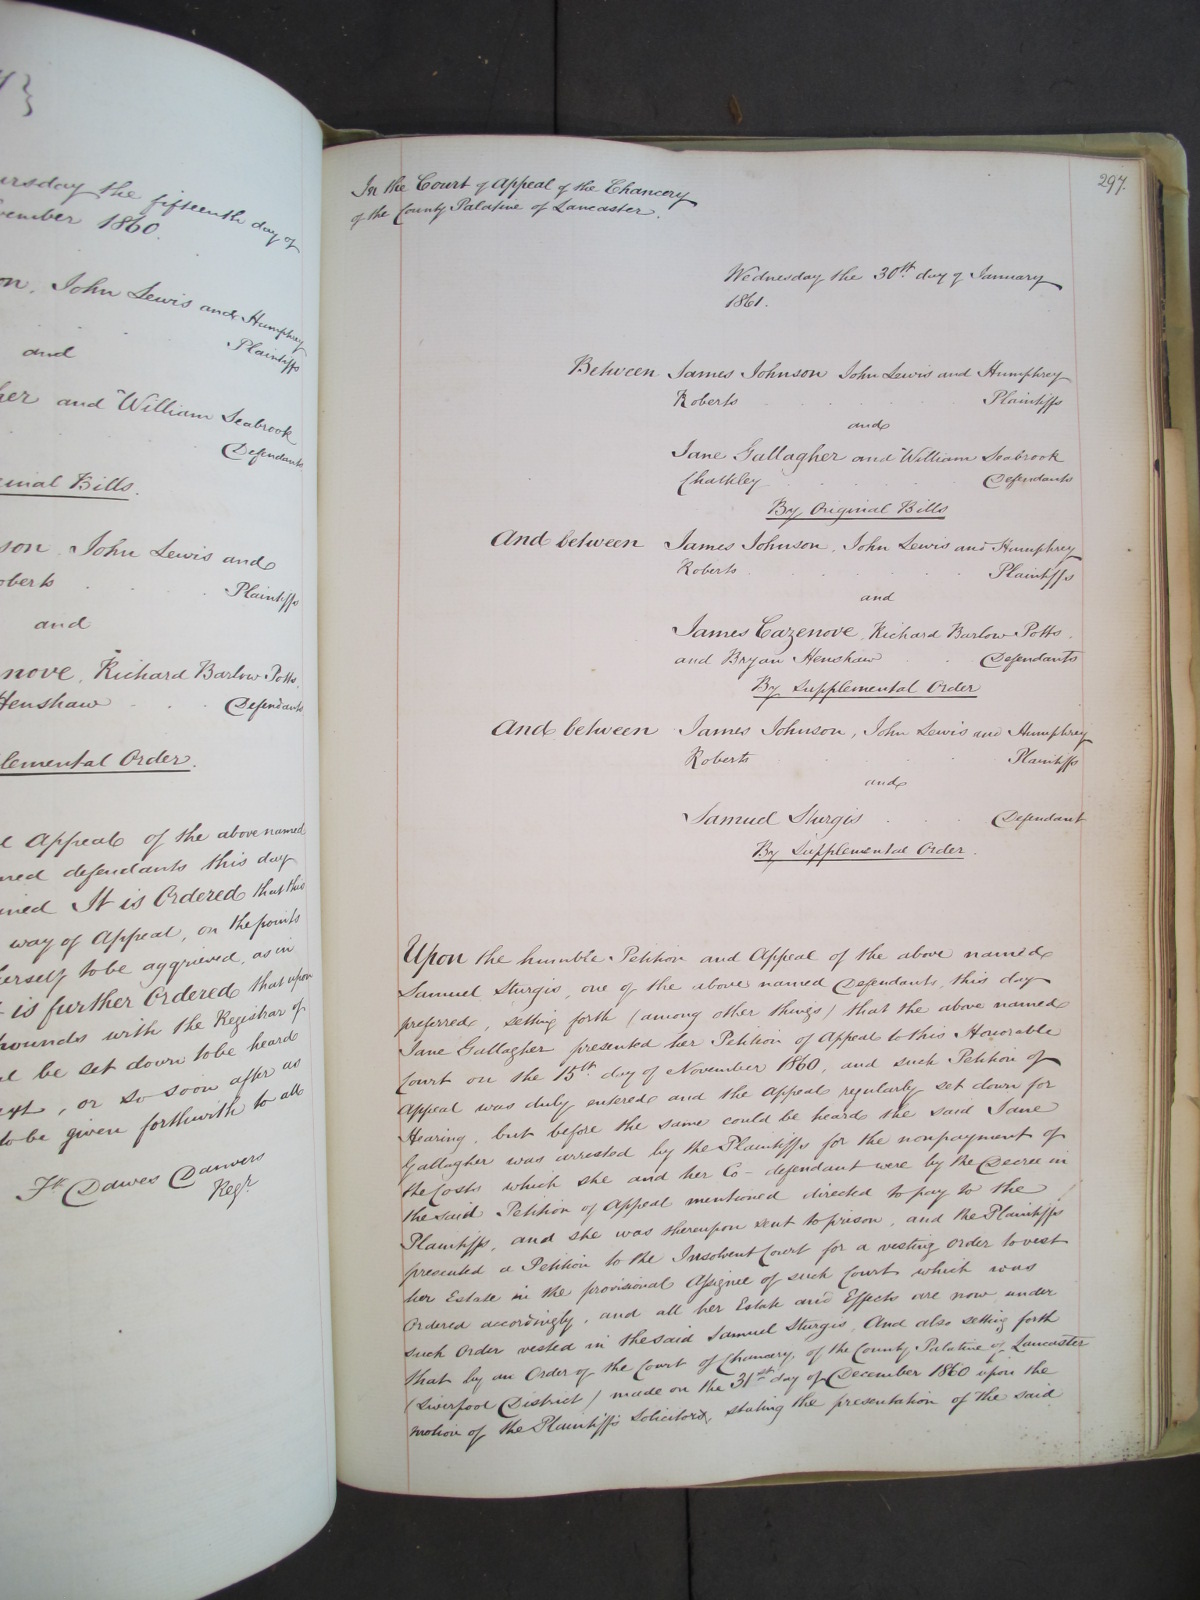 ursday the fifteenth day of
vember 1860.
on, John Lewis and Humphrey
Plaintiffs
and
her and William Seabrook
Defendants
ginal Bills.
son, John Lewis and
oberts Plaintiffs
and
nove, Richard Barlow Potts,
Henshaw Defendants
lemental Order.
Appeal of the above named
med defendants this day
ined It is Ordered that this
way of Appeal, on the points
herself to be aggrieved, as in
t is further Ordered that upon
pounds with the Registrar of
al be set down to be heard
ext, or so soon after as
to be given forthwith to all
Fk Dawes Danvers
Regr.
297.
In the Court of Appeal of the Chancery
of the County Palatine of Lancaster.
Wednesday the 30th day of January
1861.
Between James Johnson John Lewis and Humphrey
Roberts Plaintiffs
and
Jane Gallagher and William Seabrook
Chalkley Defendants
By Original Bills
And between James Johnson, John Lewis and Humphrey
Roberts Plaintiffs
and
James Cazenove, Richard Barlow Potts,
and Bryan Henshaw Defendants
By Supplemental Order
And between James Johnson, John Lewis and Humphrey
Roberts Plaintiffs
and
Samuel Sturgis Defendant
By Supplemental Order.
Upon the humble Petition and Appeal of the above named
Samuel Sturgis, one of the above named Defendants, this day
preferred, setting forth (among other things) that the above named
Jane Gallagher presented her Petition of Appeal to this Honorable
Court on the 15th day of November 1860, and such Petition of
Appeal was duly entered and the Appeal regularly set down for
Hearing, but before the same could be heard the said Jane
Gallagher was arrested by the Plaintiffs for the nonpayment of
the Costs which she and her Co-defendant were by the Decree in
the said Petition of Appeal mentioned directed to pay to the
Plaintiffs, and she was thereupon sent to prison, and the Plaintiffs
presented a Petition to the Insolvent Court for a vesting order to vest
her Estate in the provisional Assignee of such Court which was
Ordered accordingly, and all her Estate and Effects are now under
such Order vested in the said Samuel Sturgis, And also setting forth
that by an Order of the Court of Chancery of the County Palatine of Lancaster
(Liverpool District) made on the 31st day of December 1860 upon the
motion of the Plaintiffs Solicitors, stating the presentation of the said